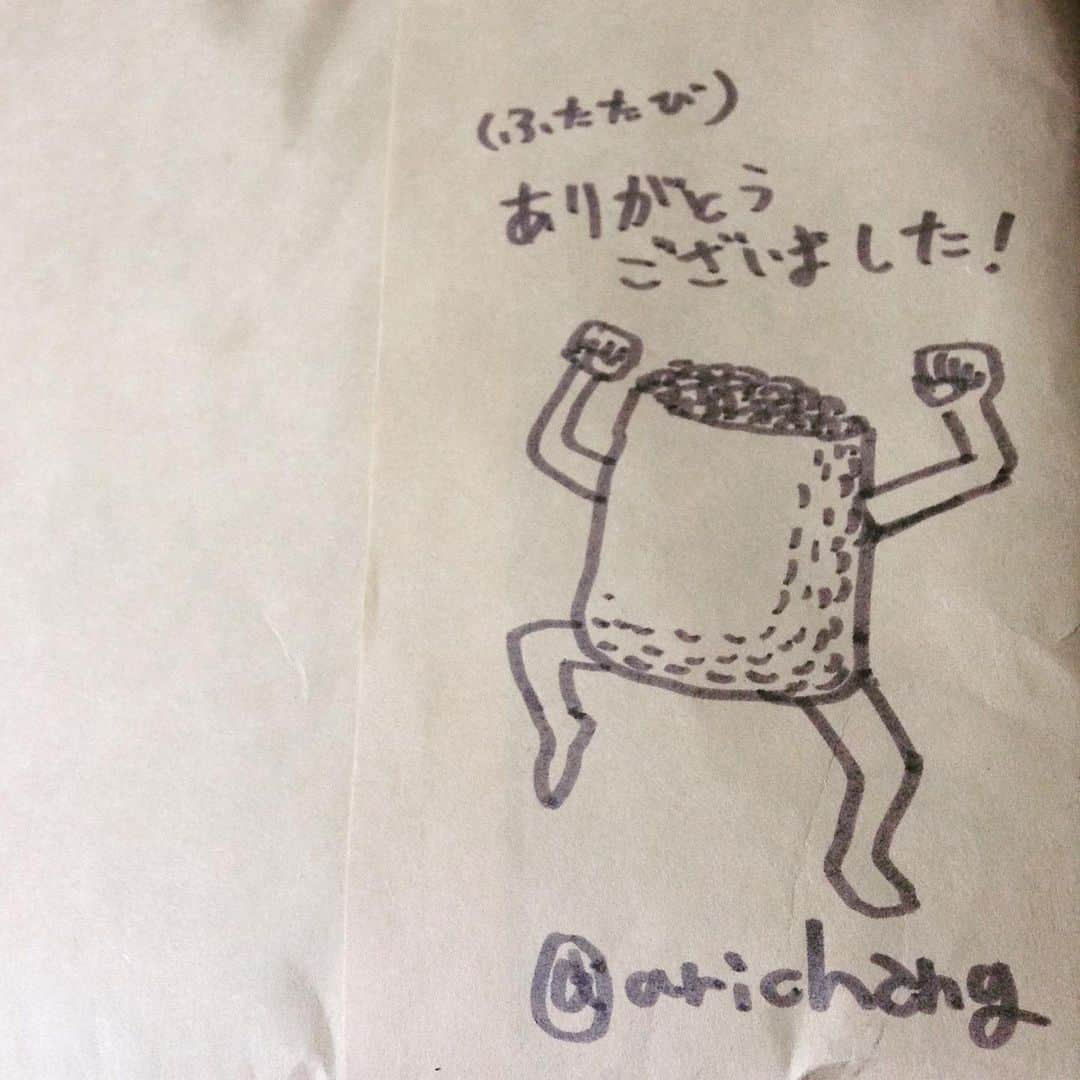 (ふたたび)
ありがとう
ございました!
@arichang